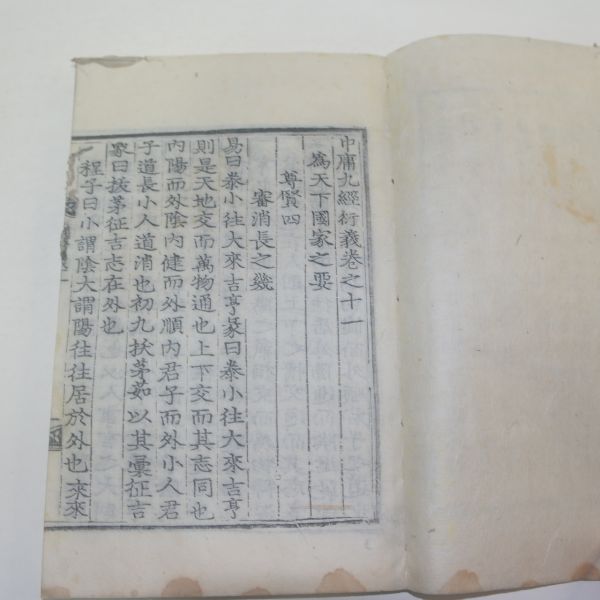 中庸九經衍義卷之十一
爲天下國家之要
尊賢四
審消長之幾
易曰泰小往大來吉亨彖曰泰小往大來吉亨
則是天地交而萬物通也上下交而其志同也
內陽而外陰內健而外順內君子而外小人君
子道長小人道消也初九拔茅茹以其彙征吉
象曰拔茅征吉志在外也
程子曰小謂陰大謂陽往往居於外也來來